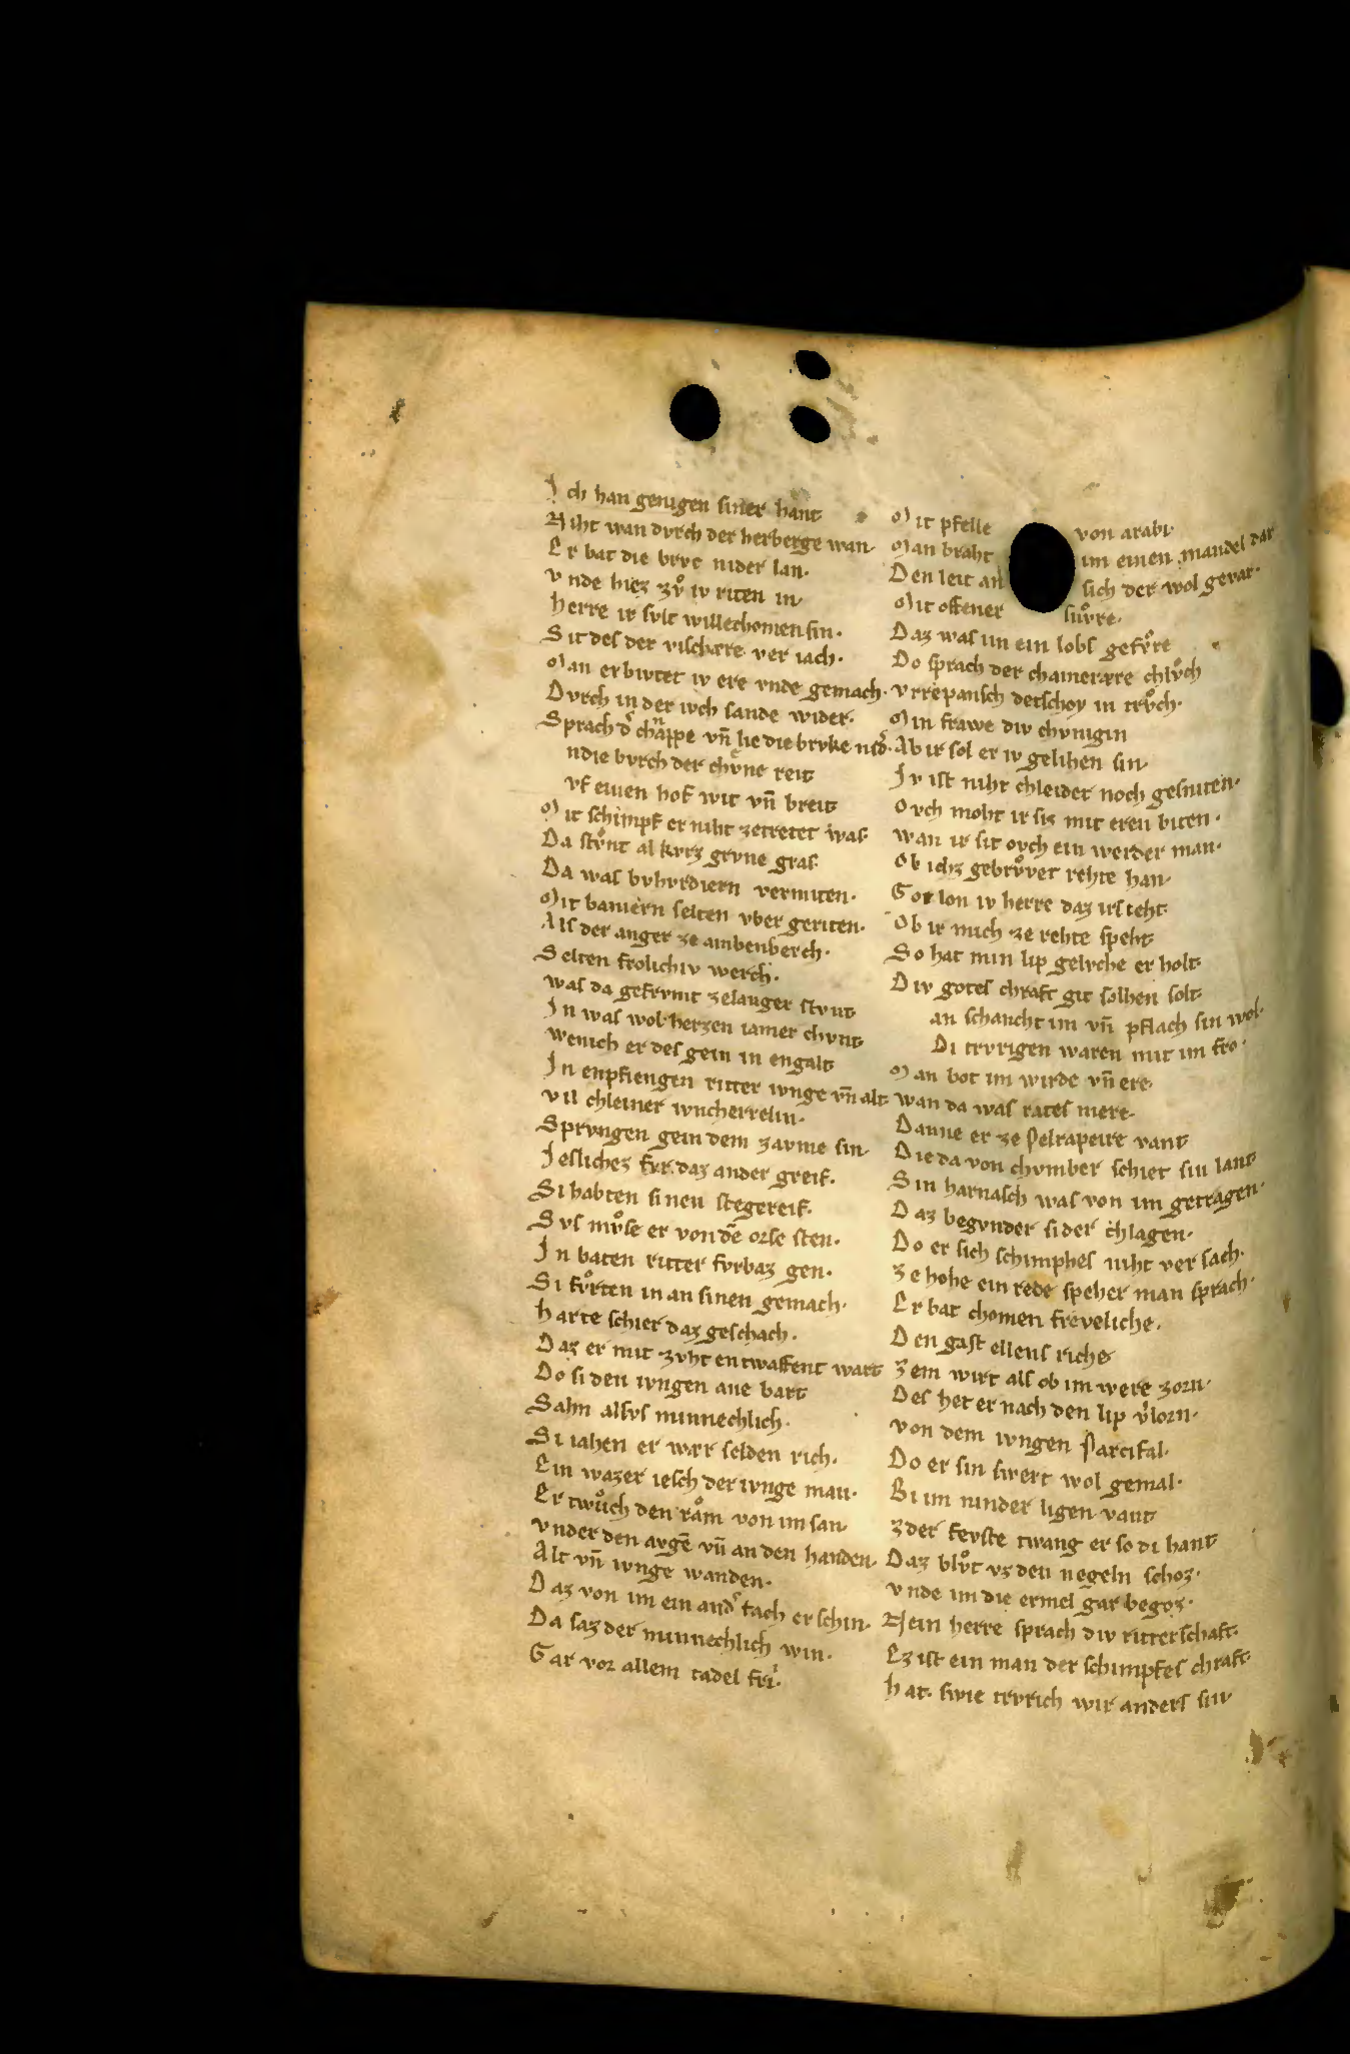 Ich han genigen siner hant
Niht wan dvrch der herberge wan·
Er bat die brvc nider lan·
vnde hiez zvͦ iv riten in·
herre ir svlt willechomen sin·
Sit des der vischære ver iach·
Man erbivtet iv ere vnde gemach·
Dvrch in der ivch sande wider·
Sprach dͤ chnappe vn̄ lie die brvke nidͤ·
n die bvrch der chvͤne reit
vf einen hof wit vn̄ breit
Mit schimpf er niht zetretet was
Da stvͦnt al kvrz grvne gras·
Da was bvhvrdiern vermiten·
Mit baniern selten vber geriten·
Als der anger ze ambenberch·
Selten frolichiv werch·
was da gefrvmt zelanger stvnt
In was wol herzen iamer chvnt
wenich er des gein in engalt
In enpfiengen ritter ivnge vn̄ alt
vil chleiner ivncherrelin·
Sprvngen gein dem zavme sin·
Jesliches fvr daz ander greif·
Si habten sinen stegereif·
Svs mvͦse er von dē orse sten·
In baten ritter fvrbaz gen·
Si fvͦrten in an sinen gemach·
harte schier daz geschach·
Daz er mit zvht entwaffent wart
Do si den ivngen ane bart
Sahn alsvs minnechlich·
Si iahen er wær selden rich·
Ein wazer iesch der ivnge man·
Er twuͦch den raͦm von im san
vnder den avgē vn̄ an den handen·
Alt vn̄ ivnge wanden·
Daz von im ein andͤ tach er schin·
Da saz der minnechlich win·
Gar vor allem tadel fri·
Mit pfelle von arabi·
Man braht im einen mandel dar
Den leit an sich der wol gevar·
Mit offener snvͦre·
Daz was im ein lobs gefvͦre
Do sprach der chameræere chlvͦch
vrrepansch detschoy in trvͦch·
Min frawe div chvnigin
Ab ir sol er iv gelihen sin·
Iv ist niht chleidet noch gesniten·
Ovch moht ir sis mit eren biten·
wan ir sit ovch ein werder man·
Ob ichz gebrvͦvet rehte han·
Got lon iv herre daz irs ieht·
Ob ir mich ze rehte speht
So hat min lip gelvche er holt
Div gotes chraft git solhen solt
an schancht im vn̄ pflach sin wol·
Di trvrigen waren mit im fro·
Man bot im wirde vn̄ ere·
wan da was rates mere·
Danne er ze Pelrapeire vant
Die da von chvmber schiet sin hant
Sin harnasch was von im getragen·
Daz begvnder sider chlagen·
Do er sich schimphes niht ver sach·
ze hohe ein rede speher man sprach·
Er bat chomen freveliche·
Den gast ellens riche
zem wirt als ob im were zorn·
Des het er nach den lip v͛lorn·
von dem ivngen Parcifal·
Do er sin swert wol gemal·
Bi im ninder ligen vant
zder fevste twang er so di hant
Daz blvͦt vz den negeln schoz·
vnde im die ermel gar begoz·
Nein herre sprach div ritterschaft·
Ez ist ein man der schimpfes chraft
hat· swie trvrich wir anders sin